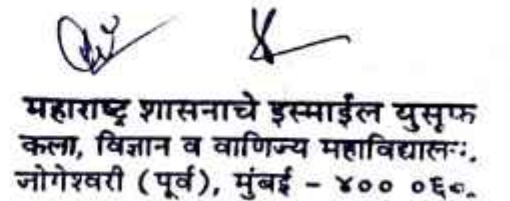 महाराष्ट्र शासनाचे इस्माईल युसूफ
कला, विज्ञान व वाणिज्य महाविद्यालय,
जोगेश्वरी (पूर्व), मुंबई - ४०० ०६०.